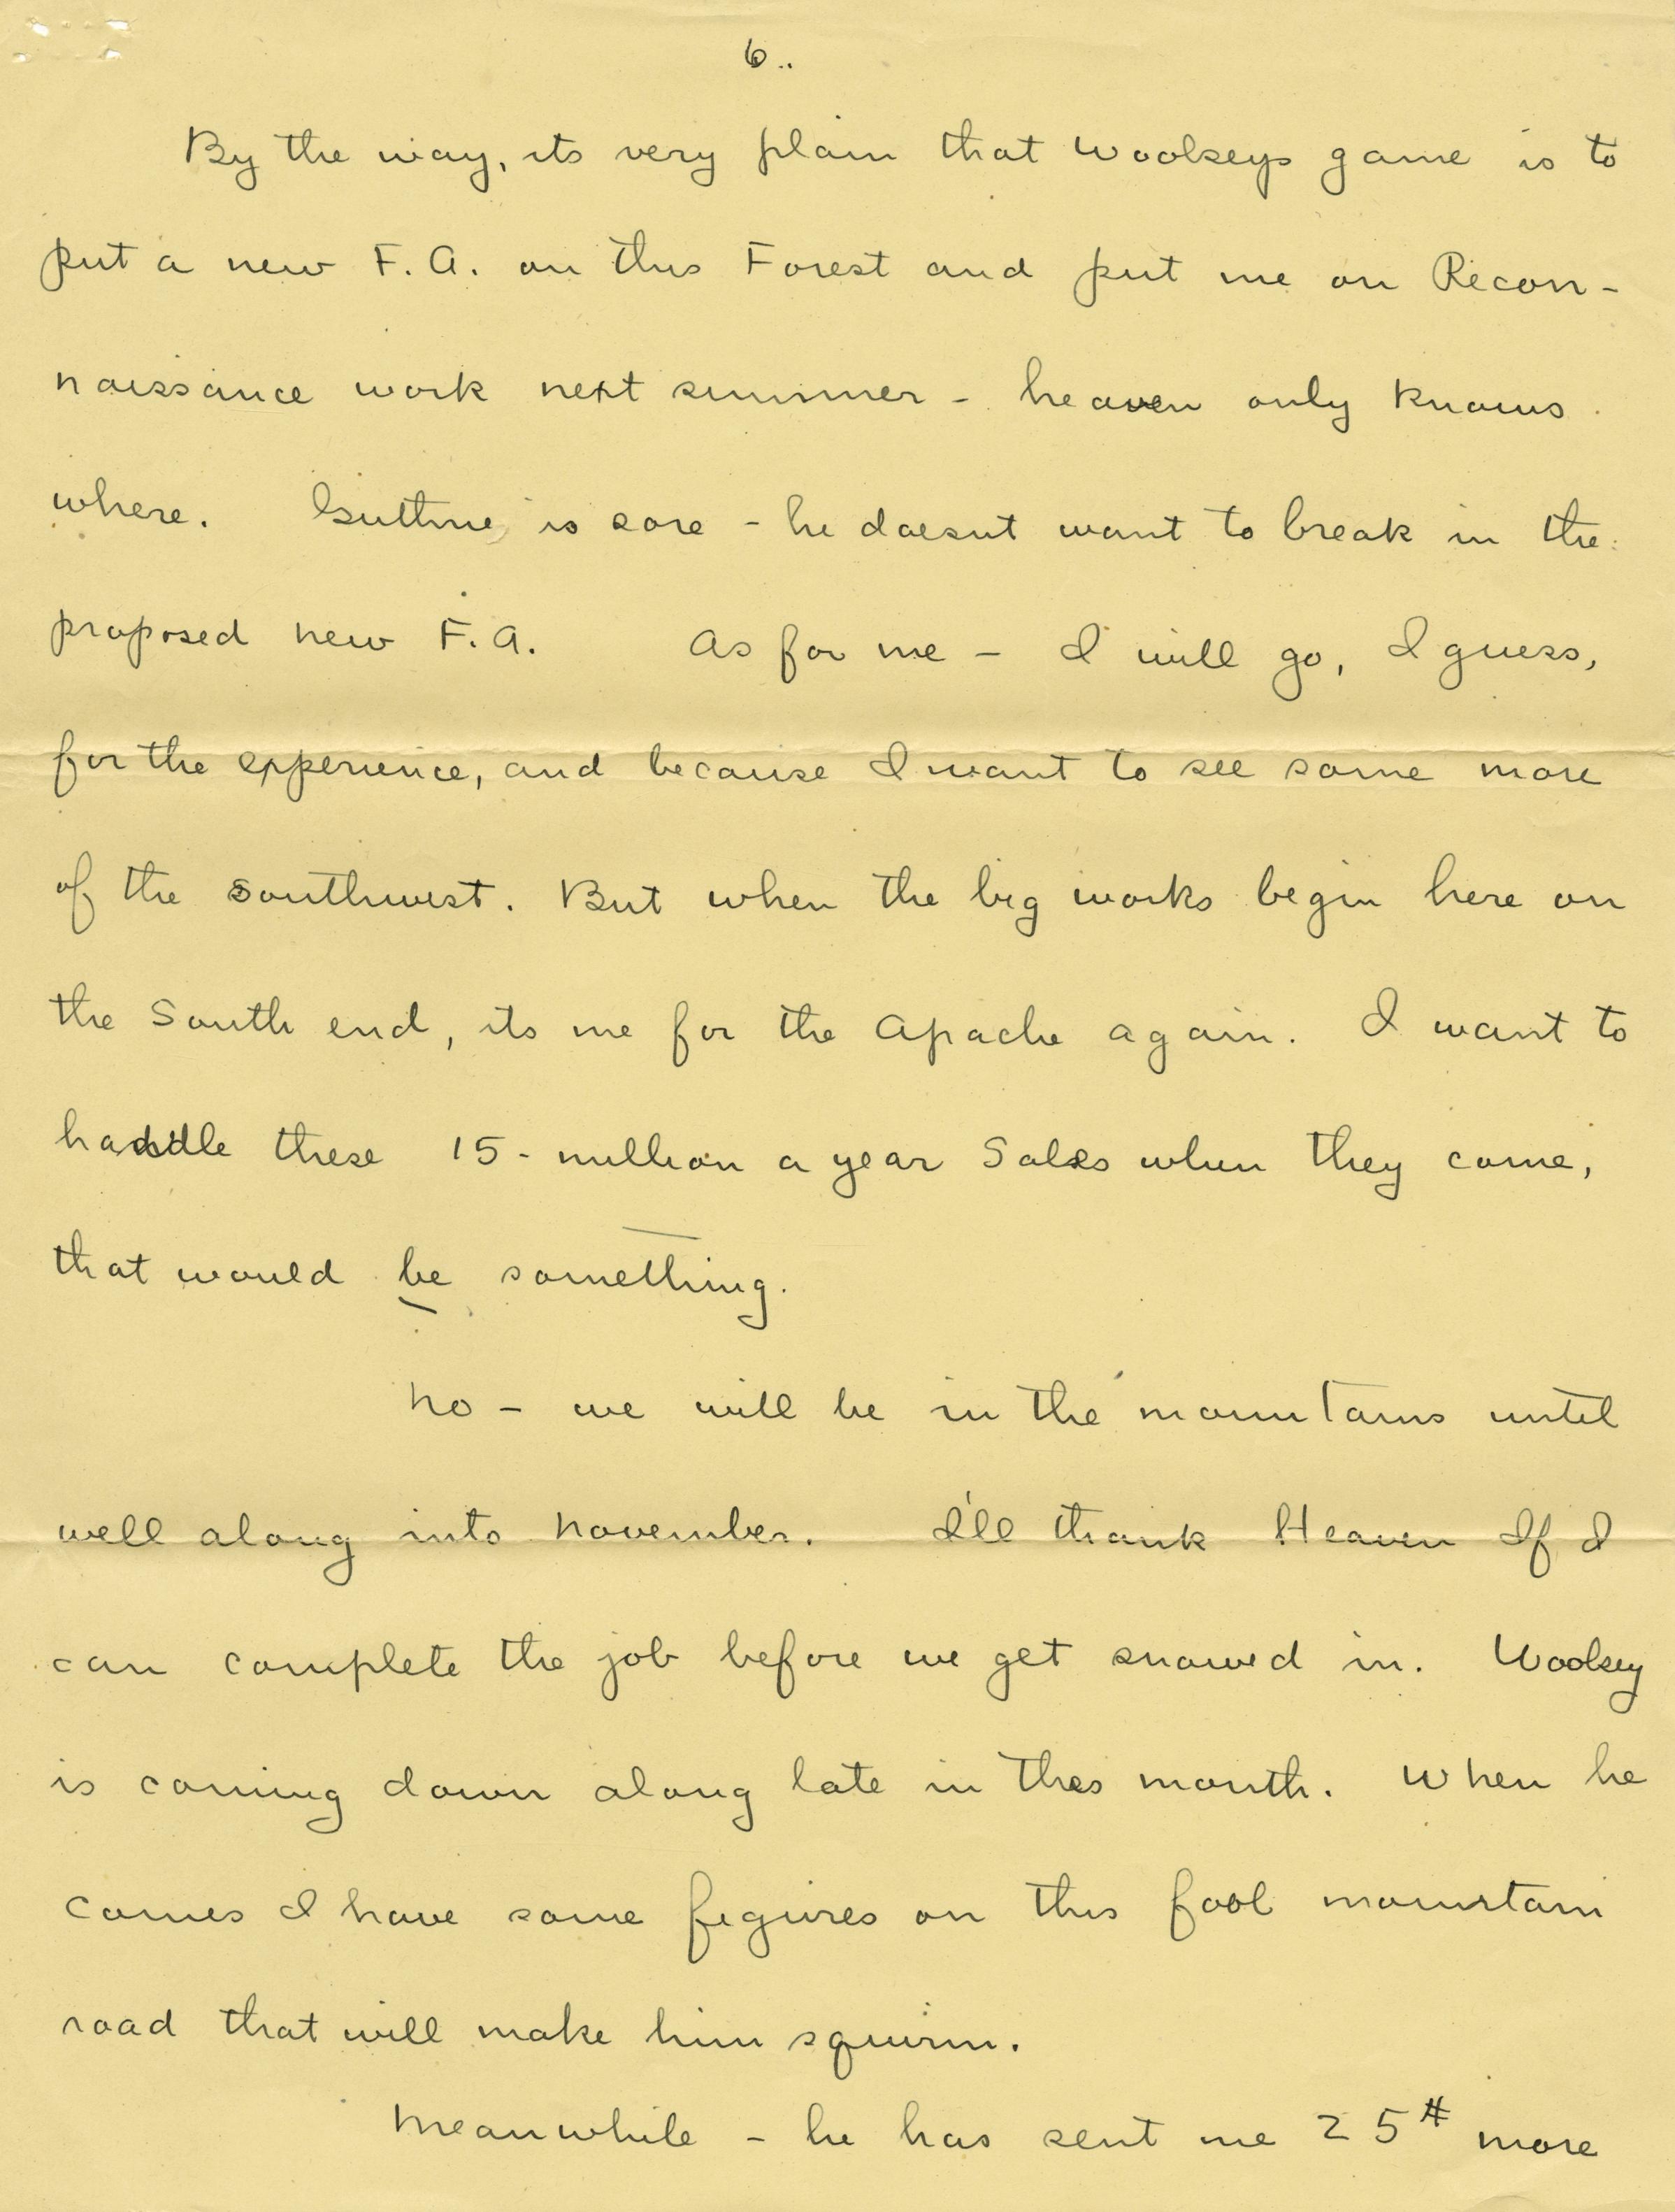 6..
By the way, its very plain that Woolseys game is to
put a new F.A. on this Forest and put me on Recon-
naissance work next summer - heaven only knows
where. Guthrie is sore - he doesnt want to break in the
proposed new F.A. As for me - I will go, I guess,
for the experience, and because I want to see some more
of the Southwest. But when the big works begin here on
the South end, its me for the Apache again. I want to
handle these 15-million a year Sales when they come,
that would be something.
No - we will be in the mountains until
well along into November. I'll thank Heaven If I
can complete the job before we get snowed in. Woolsey
is coming down along late in this month. When he
comes I have some figures on this fool mountain
road that will make him squirm.
Meanwhile - he has sent me 25# more